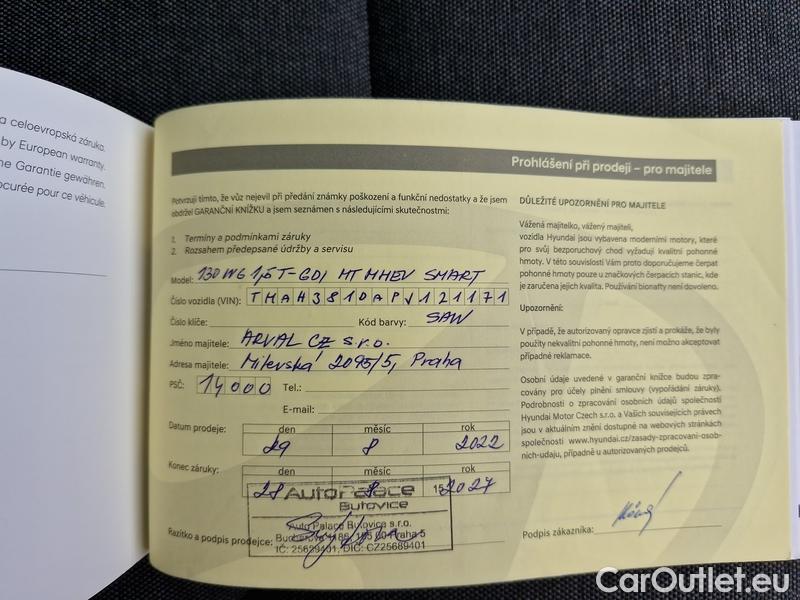 a celoevropská záruka.
by European warranty.
ne Garantie gewähren.
ocurée pour ce véhicule.
Prohlášení při prodeji – pro majitele
Potvrzuji tímto, že vůz nejevil při předání známky poškození a funkční nedostatky a že jsem
obdržel GARANČNÍ KNÍŽKU a jsem seznámen s následujícími skutečnostmi:
1. Termíny a podmínkami záruky
2. Rozsahem předepsané údržby a servisu
Model: i30 WG 1,5 T-GDI MT MHEV SMART
Číslo vozidla (VIN): TMAH3810APJ121171
Číslo klíče: Kód barvy: SAW
Jméno majitele: ARVAL CZ s.r.o.
Adresa majitele: Milevská 2095/5, Praha
PSČ: 14000 Tel.:
E-mail:
Datum prodeje: den měsíc rok
29 8 2022
Konec záruky: den měsíc rok
28 8 2027
Auto Palace
Butovice
Auto Palace Butovice s.r.o.
Praha 5
Razítko a podpis prodejce:
DŮLEŽITÉ UPOZORNĚNÍ PRO MAJITELE
Vážená majitelko, vážený majiteli,
vozidla Hyundai jsou vybavena moderními motory, které
pro svůj bezporuchový chod vyžadují kvalitní pohonné
hmoty. V této souvislosti Vám proto doporučujeme čerpat
pohonné hmoty pouze u značkových čerpacích stanic, kde
je zaručena jejich kvalita. Používání bionafty není dovoleno.
Upozornění:
V případě, že autorizovaný opravce zjistí a prokáže, že byly
použity nekvalitní pohonné hmoty, není možno akceptovat
případné reklamace.
Osobní údaje uvedené v garanční knížce budou zpra-
covány pro účely plnění smlouvy (vypořádání záruky).
Podrobnosti o zpracování osobních údajů společností
Hyundai Motor Czech s.r.o. a Vašich souvisejících právech
jsou v aktuálním znění dostupné na webových stránkách
společnosti www.hyundai.cz/zasady-zpracovani-osob-
nich-udaju, případně u autorizovaných prodejců.
Podpis zákazníka:
CarOutlet.eu